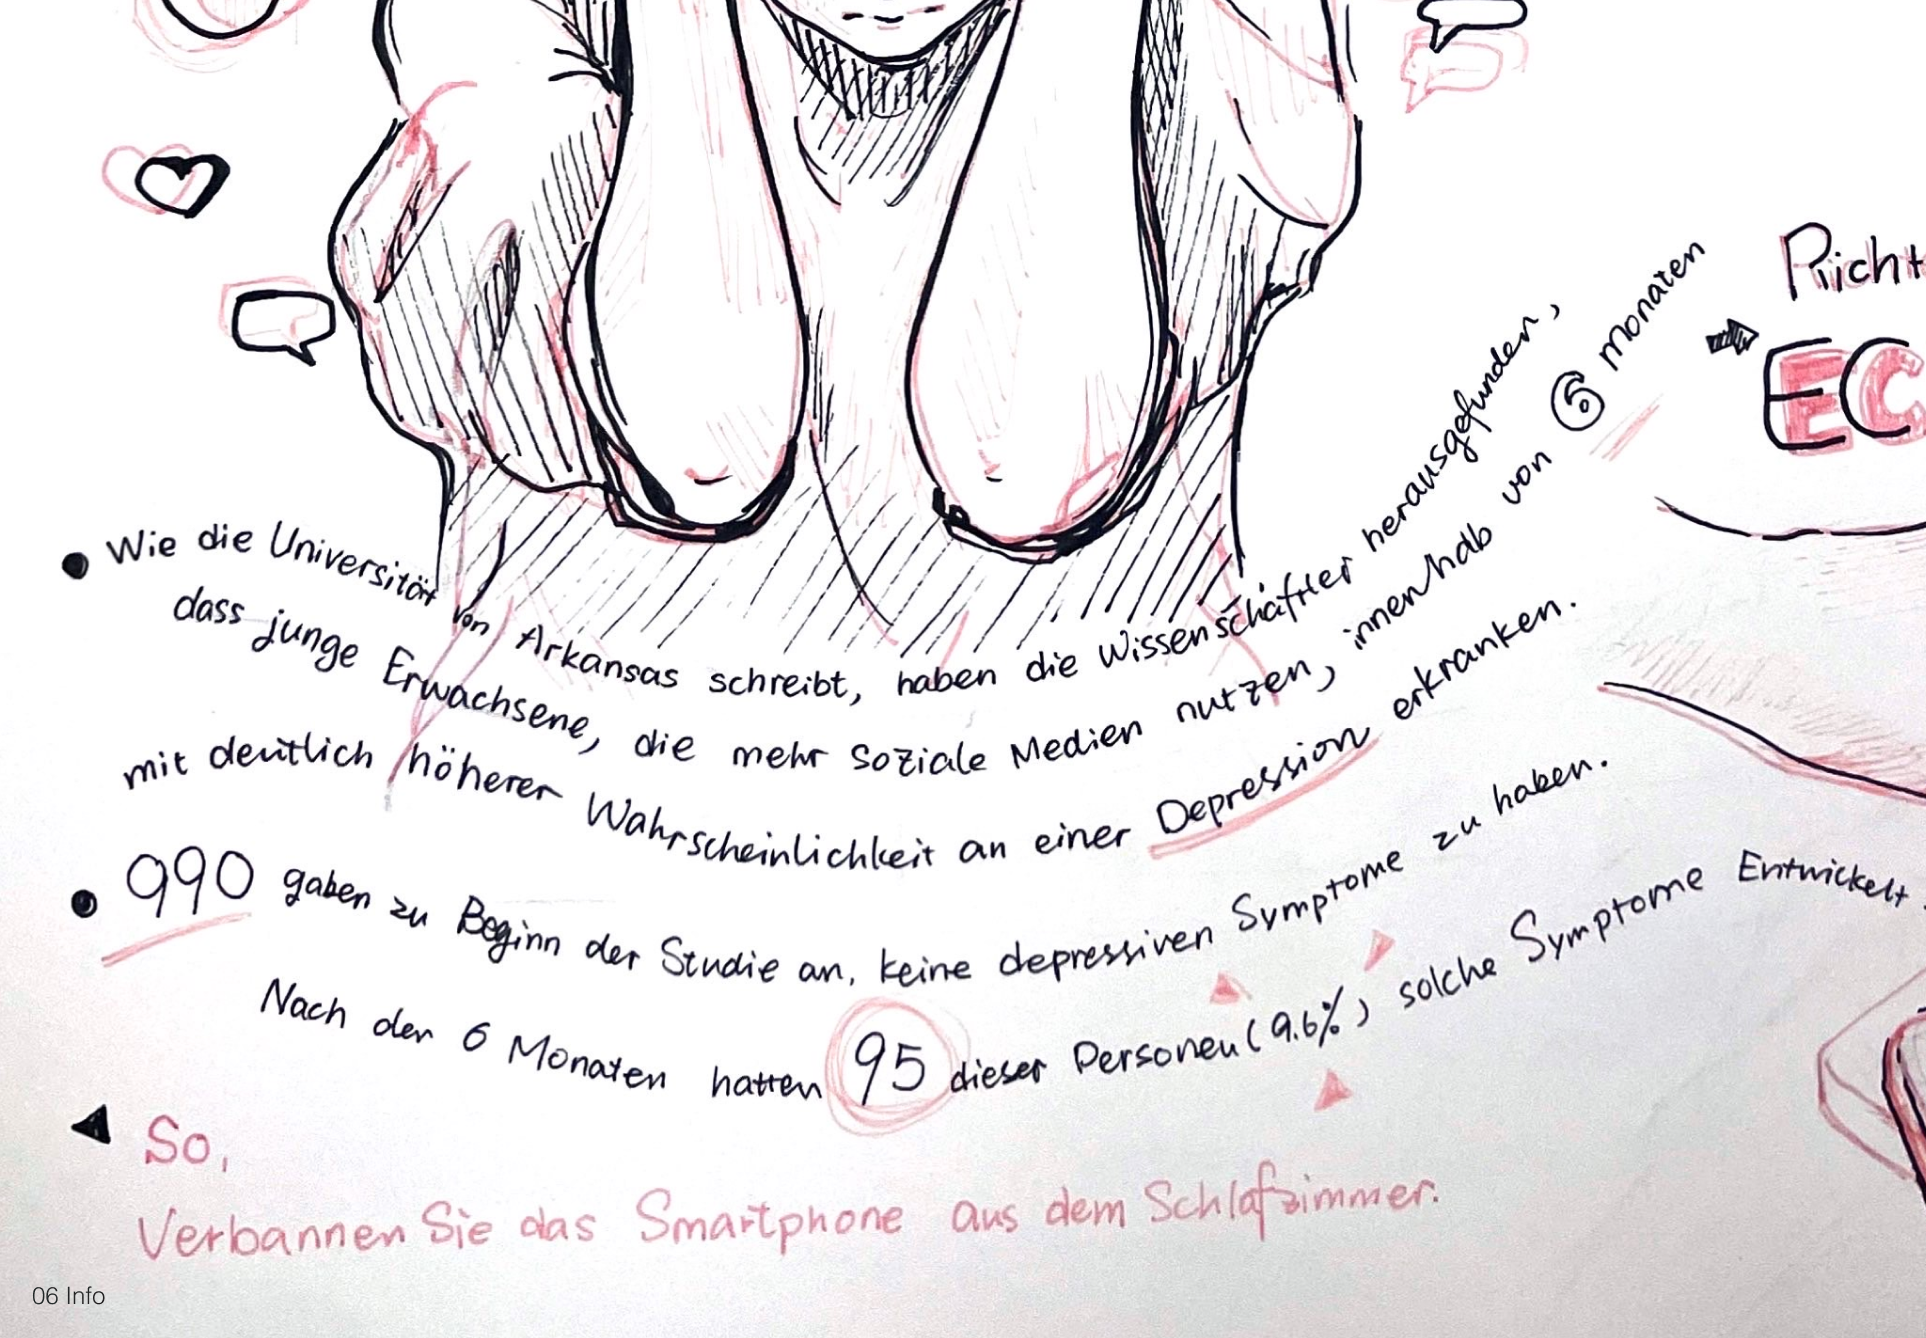 • Wie die Universität von Arkansas schreibt, haben die Wissenschaftler herausgefunden,
dass junge Erwachsene, die mehr Soziale Medien nutzen, innenhalb von 6 monaten
mit deutlich höherer Wahrscheinlichkeit an einer Depression erkranken.
• 990 gaben zu Beginn der Studie an, keine depressiven Symptome zu haben.
Nach den 6 Monaten hatten 95 dieser Personen (9.6%) solche Symptome Entwickelt.
So,
Verbannen Sie das Smartphone aus dem Schlafzimmer.
Richt
EC
06 Info